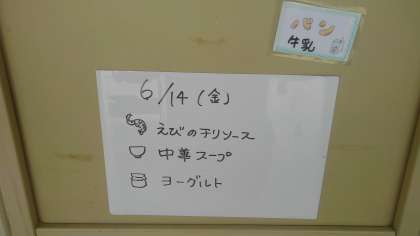 パン
牛乳
6/14(金)
えびのチリソース
中華スープ
ヨーグルト